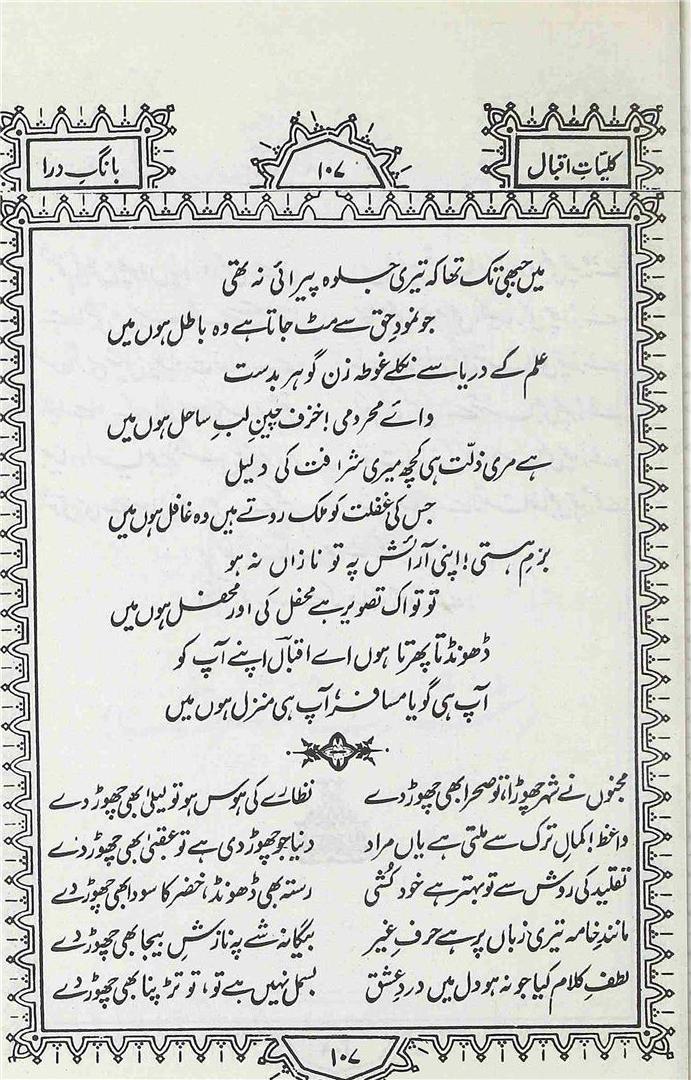 کلیاتِ اقبال
۱۰۷
بانگِ درا
میں جبھی تک تھا کہ تیری جلوہ پیرائی نہ تھی
جو نمودِ حق سے مٹ جاتا ہے وہ باطل ہوں میں
علم کے دریا سے نکلے غوطہ زن گوہر بدست
وائے محرومی! خزف چینِ لبِ ساحل ہوں میں
ہے مری ذلّت ہی کچھ میری شرافت کی دلیل
جس کی غفلت کو ملک روتے ہیں وہ غافل ہوں میں
بزمِ ہستی! اپنی آرائش پہ تو نازاں نہ ہو
تو تو اک تصویر ہے محفل کی اور محفل ہوں میں
ڈھونڈتا پھرتا ہوں اے اقبالؔ اپنے آپ کو
آپ ہی گویا مسافر، آپ ہی منزل ہوں میں
مجنوں نے شہر چھوڑا، تو صحرا بھی چھوڑ دے نظارے کی ہوس ہو تو لیلیٰ بھی چھوڑ دے
واعظ! کمالِ ترک سے ملتی ہے یاں مراد دنیا جو چھوڑ دی ہے تو عقبیٰ بھی چھوڑ دے
تقلید کی روش سے تو بہتر ہے خودکشی رستہ بھی ڈھونڈ، خضر کا سودا بھی چھوڑ دے
مانندِ خامہ تیری زباں پر ہے حرفِ غیر بیگانہ شے پہ نازشِ بیجا بھی چھوڑ دے
لطفِ کلام کیا جو نہ ہو دل میں دردِ عشق بسمل نہیں ہے تو، تو تڑپنا بھی چھوڑ دے
۱۰۷